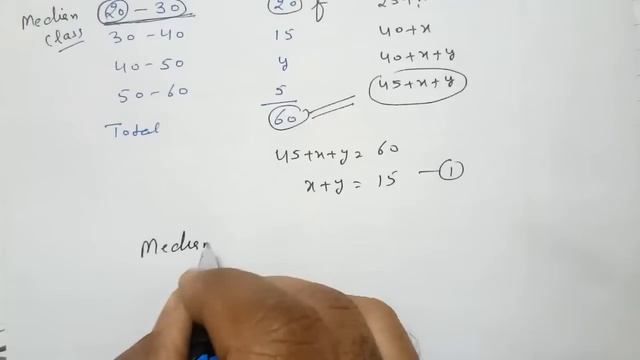 Median 20 - 30 20 f
class 30 - 40 15 40+x
40 - 50 y 40+x+y
50 - 60 5 45+x+y
Total 60
45+x+y = 60
x+y = 15 — 1
Median